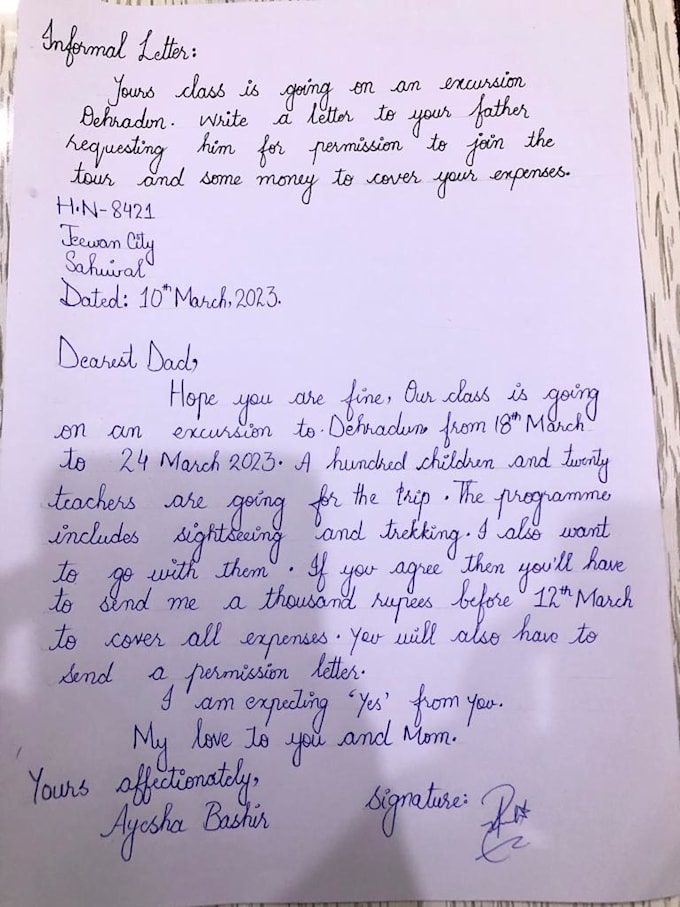 Informal Letter:
Yours class is going on an excursion
Dehradun. Write a letter to your father
requesting him for permission to join the
tour and some money to cover your expenses.
H.N-8421
Jeewan City
Sahiwal
Dated: 10th March, 2023.
Dearest Dad,
Hope you are fine, Our class is going
on an excursion to Dehradun, from 18th March
to 24 March 2023. A hundred children and twenty
teachers are going for the trip. The programme
includes sightseeing and trekking. I also want
to go with them. If you agree then you'll have
to send me a thousand rupees before 12th March
to cover all expenses. You will also have to
send a permission letter.
I am expecting 'Yes' from you.
My love to you and Mom.
Yours affectionately,
Ayesha Bashir
Signature: